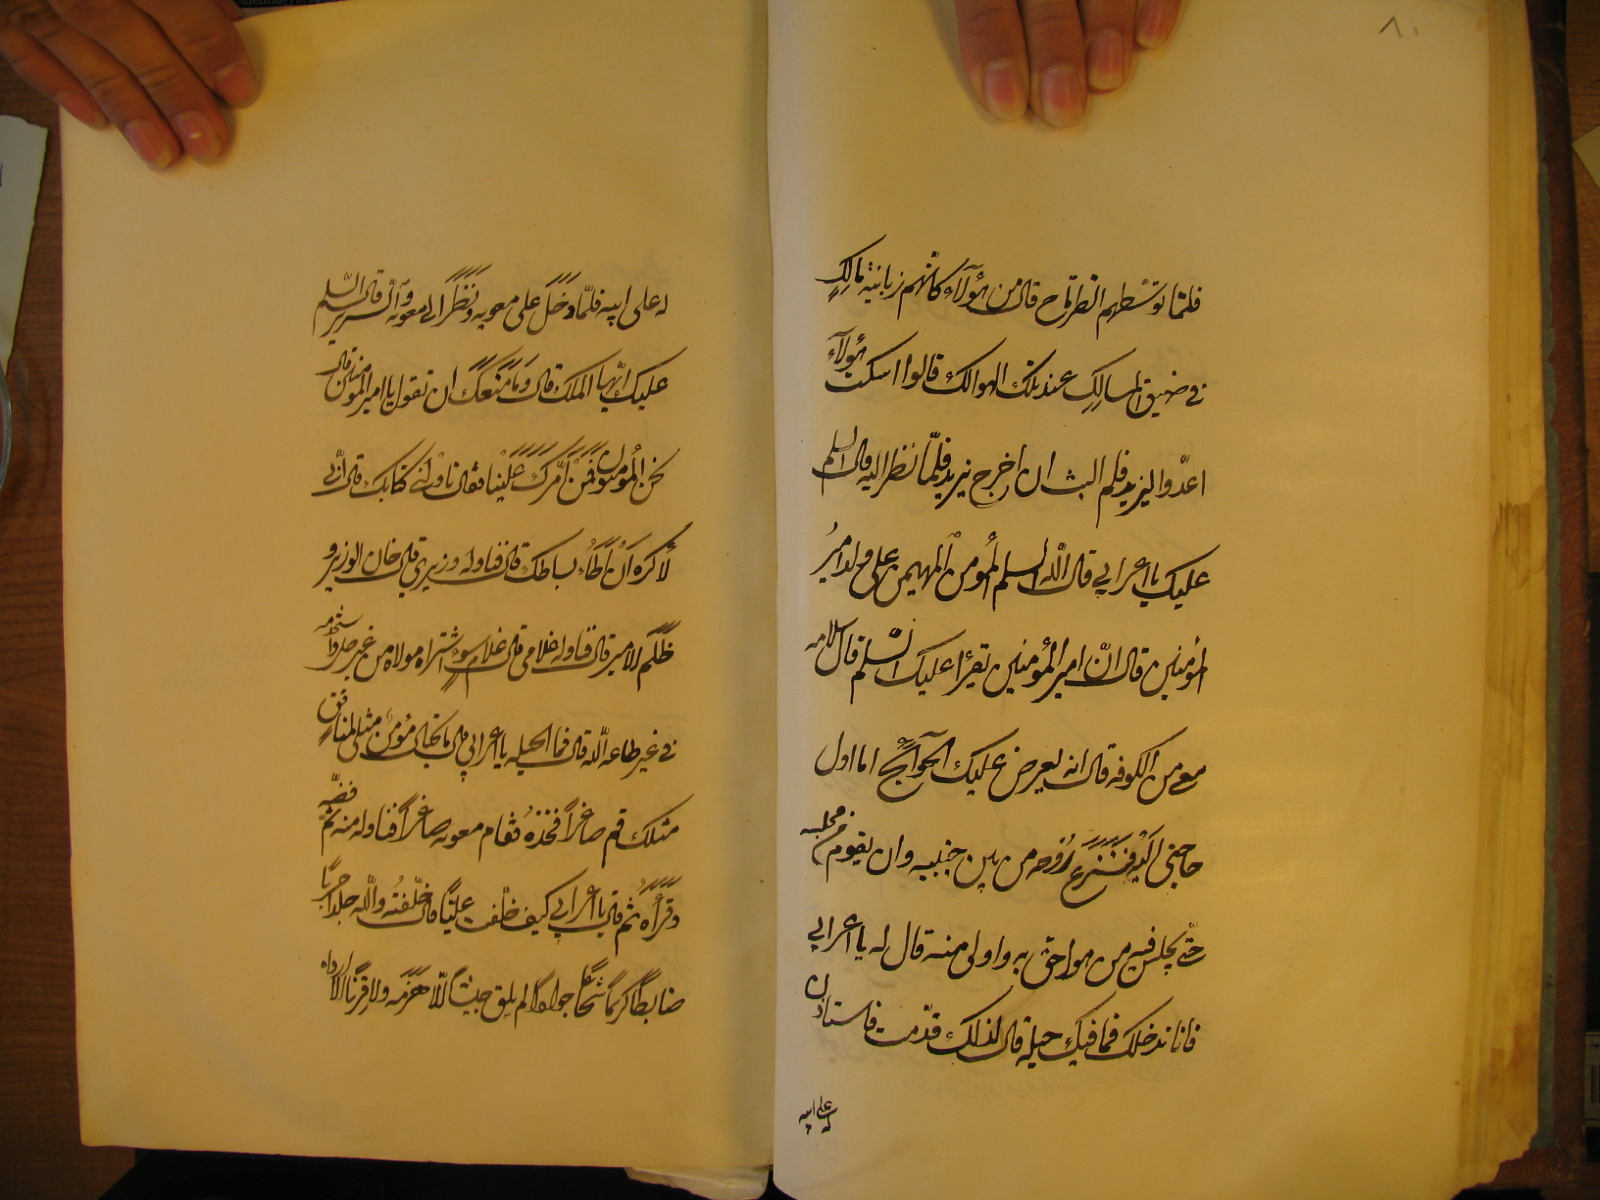 ٨٠
فلما توسطهم الطرماح قال من هؤلآء كانهم زبانية مالكٍ
فى ضيق المسالكِ عند تلك الهوالك قالوا اسكت هؤلآء
اعدّوا ليزيد فلم البث ان اخرج يزيد فلمّا نظر اليه قال السلم
عليك يا اعرابي قال اللّه السلم المؤمن المهيمن على ولد اميرُ
المؤمنين قال انّ امير المؤمنين تقرأ عليك السلم قال سلامه
معى من الكوفه قال انه يعرض عليك الحوآئج اما اول
حاجتى اليه فنزع رُوحه من بين جنبيه وان يقوم من مجلسه
حتّى يجلس فيه من هو احق به واولى منه قال له يا اعرابي
فانا ندخلك فما فيك حيلة قال لذلك قدّمت فاستاذن
له على ابيه
له على ابيه فلمّا دخل على معويه ونظر الى معويه والسرير قال السّلم
عليك ايّها الملك قال وما منعك ان تقول يا امير المؤمنين قال
نحن المؤمنون فمن امّرك علينا فقال ناولنى كتابك قال انّى
لأكره ان اطاء بساطك قال فناوله وزيرى قال خان الوزير و
ظلم الامير قال فناوله غلامى قال غلام سوءٍ اشتراه مولاه من غير حل واستخدمه
فى غير طاعه اللّه قال فما الحيله يا اعرابي قال ما يحتال مؤمن مثلى لمنافق
مثلك قم صاغراً فخذه فقام معويه صاغراً فناوله منه ثمّ فضّه
وقرأه ثم قال يا اعرابي كيف خلّفت عليّاً قال خلّفته واللّه جلداً حريّاً
ضابطاً كريماً شجاعاً جواداً لم يلق جيشاً الّا هزمه ولا قرناً الّا ارداه